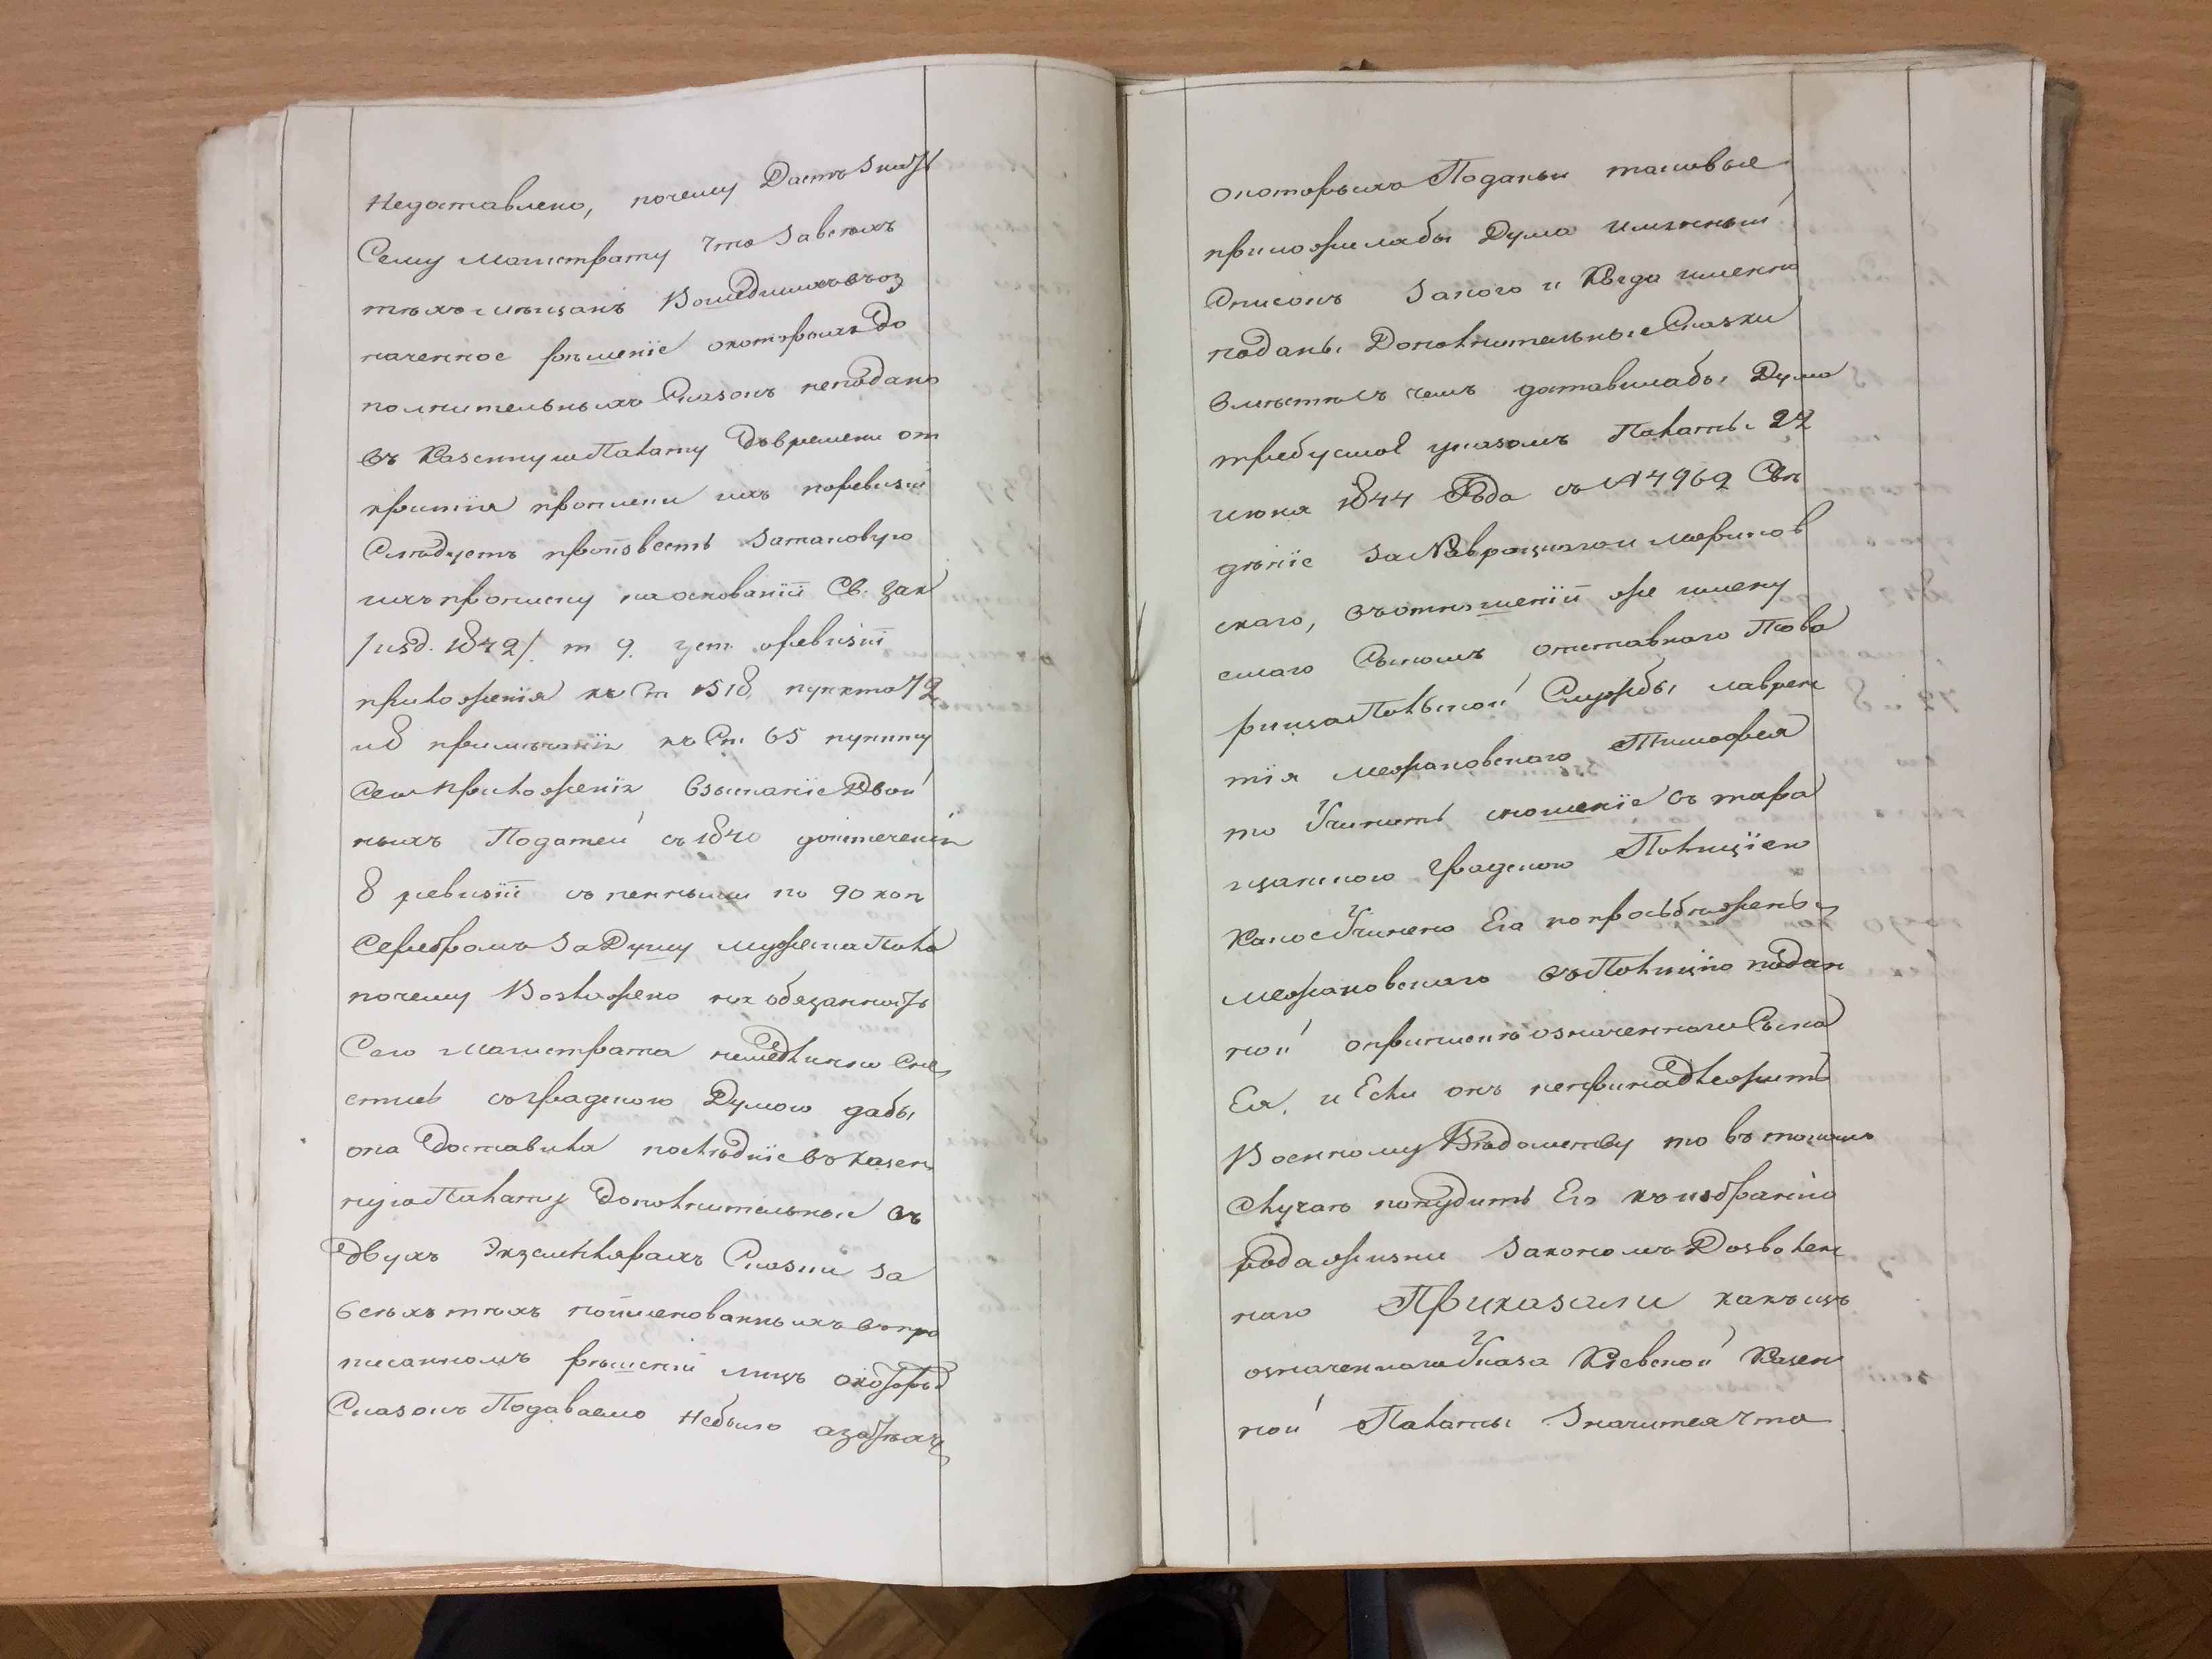 недоставлено, почему Дастъ знать
Сему Магистрату что за всехъ
техъ мещанъ Вошедшихъ въ оз
наченное решеніе о которыхъ До
полнительныхъ Сказокъ неподано
въ Казенную Палату до времени от
крытія прописки ихъ по ревизіи
Следуетъ произвесть за таковую
ихъ прописку на основаніи Св. Зак
/изд. 1842/ т 9. уст. о ревизіи
приложенія къ ст 1518, пункта 72
и 8 примечанія къ Ст 65 пункту
Сего приложенія взысканіе Двой
ныхъ Податей съ 1840 до истеченія
8 ревизіи съ пенными по 90 коп
Серебромъ за Душу мужеска Пола
почему Возложено на обязанность
Сего Магистрата немедленно Сне
стись съ градскою Думою дабы
она Доставила последніе въ Казен
ную Палату Дополнительныя въ
двухъ Экземплярахъ Сказки за
всехъ техъ поименованныхъ въ про
писанномъ решеніи лицъ о которых
Сказокъ Подаваемо небыло а за техъ
о которыхъ Поданы таковые
приложилабы Дума именный
Списокъ за кого и Когда именно
поданы Дополнительные Сказки
вместе съ чемъ доставилабы Дума
требуемое указомъ Палаты 27
июня 1844 Года съ № 4969 Све
деніе за Навроцкаго и Мержанов
скаго, въ отношеніи же имену
емаго Сыномъ отставнаго Това
рища Польской Службы Лаврен
тія Межановскаго Тимофея
то Учинить сношеніе съ тара
щанскою градскою Полиціею
Какое Учинено Ею по прозьбе жены
Межановскаго въ Полицію подан
ной о причислке означеннаго Сына
Ея. и Если онъ непринадлежитъ
Военному Ведомству то въ такомъ
Случаю понудить Его къ избранію
рода жизни Закономъ Дозволен
наго Приказали какъ изъ
означеннаго Указа Кіевской Казен
ной Палаты Значится что